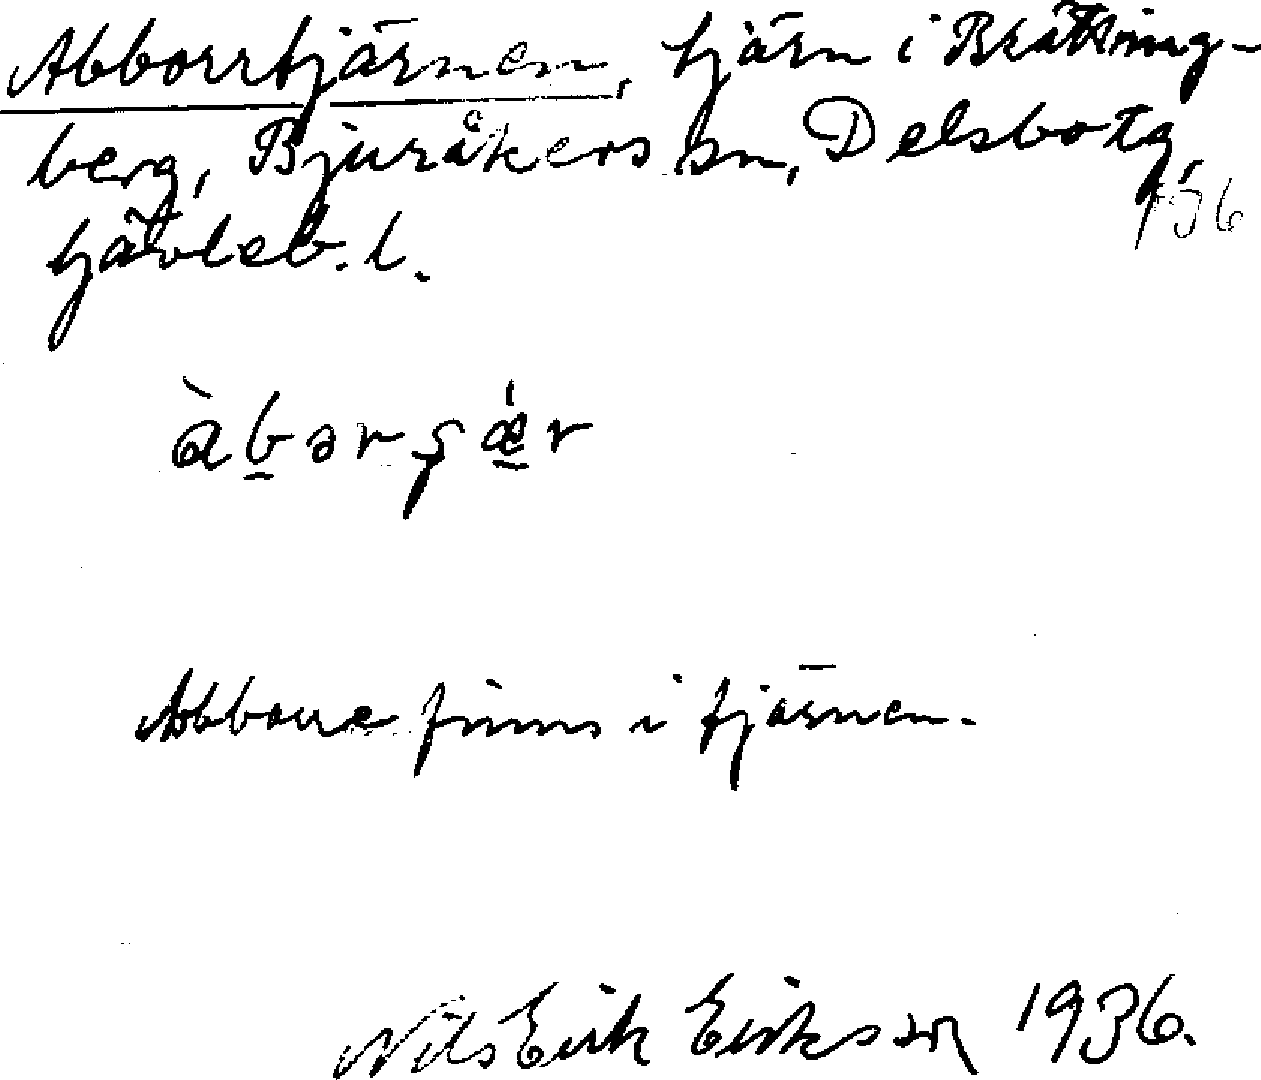 Abborrtjärnen, tjärn i Bräkning-
berg, Bjuråkers sn, Delsbo tg,
Gävleb. l.
136
àbərʂǽr
Abborre finns i tjärnen.
Nils Erik Eriksson 1936.